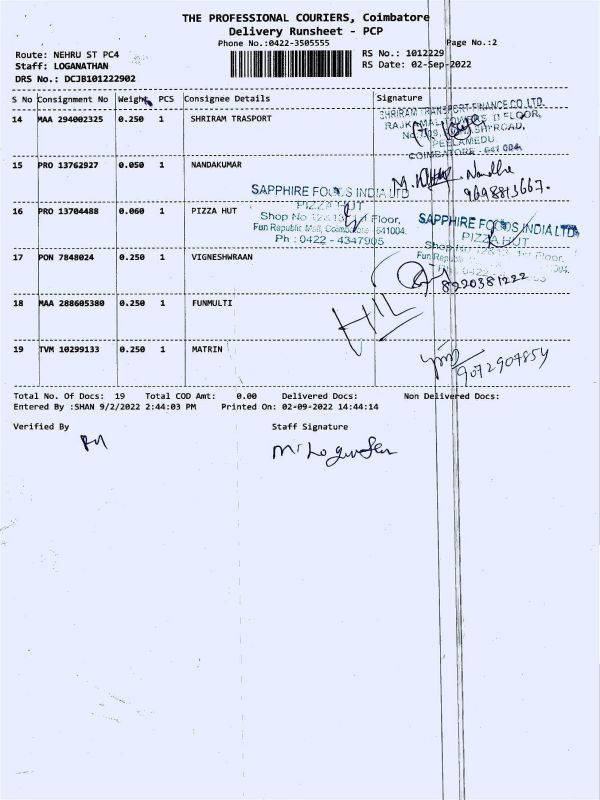 THE PROFESSIONAL COURIERS, Coimbatore
Delivery Runsheet - PCP
Phone No.:0422-3505555
Page No.:2
Route: NEHRU ST PC4
Staff: LOGANATHAN
DRS No.: DCJB101222902
RS No.: 1012229
RS Date: 02-Sep-2022
S No Consignment No Weight PCS Consignee Details Signature
14 MAA 294002325 0.250 1 SHRIRAM TRASPORT
SHRIRAM TRANSPORT FINANCE CO. LTD.
PEELAMEDU
COIMBATORE - 641 004
15 PRO 13762927 0.050 1 NANDAKUMAR
M. Nandha
9698813667.
SAPPHIRE FOODS INDIA LTD
PIZZA HUT
16 PRO 13704488 0.060 1 PIZZA HUT
Shop No 12&13, 1st Floor,
Fun Republic Mall, Coimbatore 641004.
Ph : 0422 - 4347905
SAPPHIRE FOODS INDIA LTD.
PIZZA HUT
17 PON 7848024 0.250 1 VIGNESHWRAAN
8220381222
18 MAA 288605380 0.250 1 FUNMULTI
HIL
19 TVM 10299133 0.250 1 MATRIN
9072907854
Total No. Of Docs: 19 Total COD Amt: 0.00 Delivered Docs: Non Delivered Docs:
Entered By :SHAN 9/2/2022 2:44:03 PM Printed On: 02-09-2022 14:44:14
Verified By Staff Signature